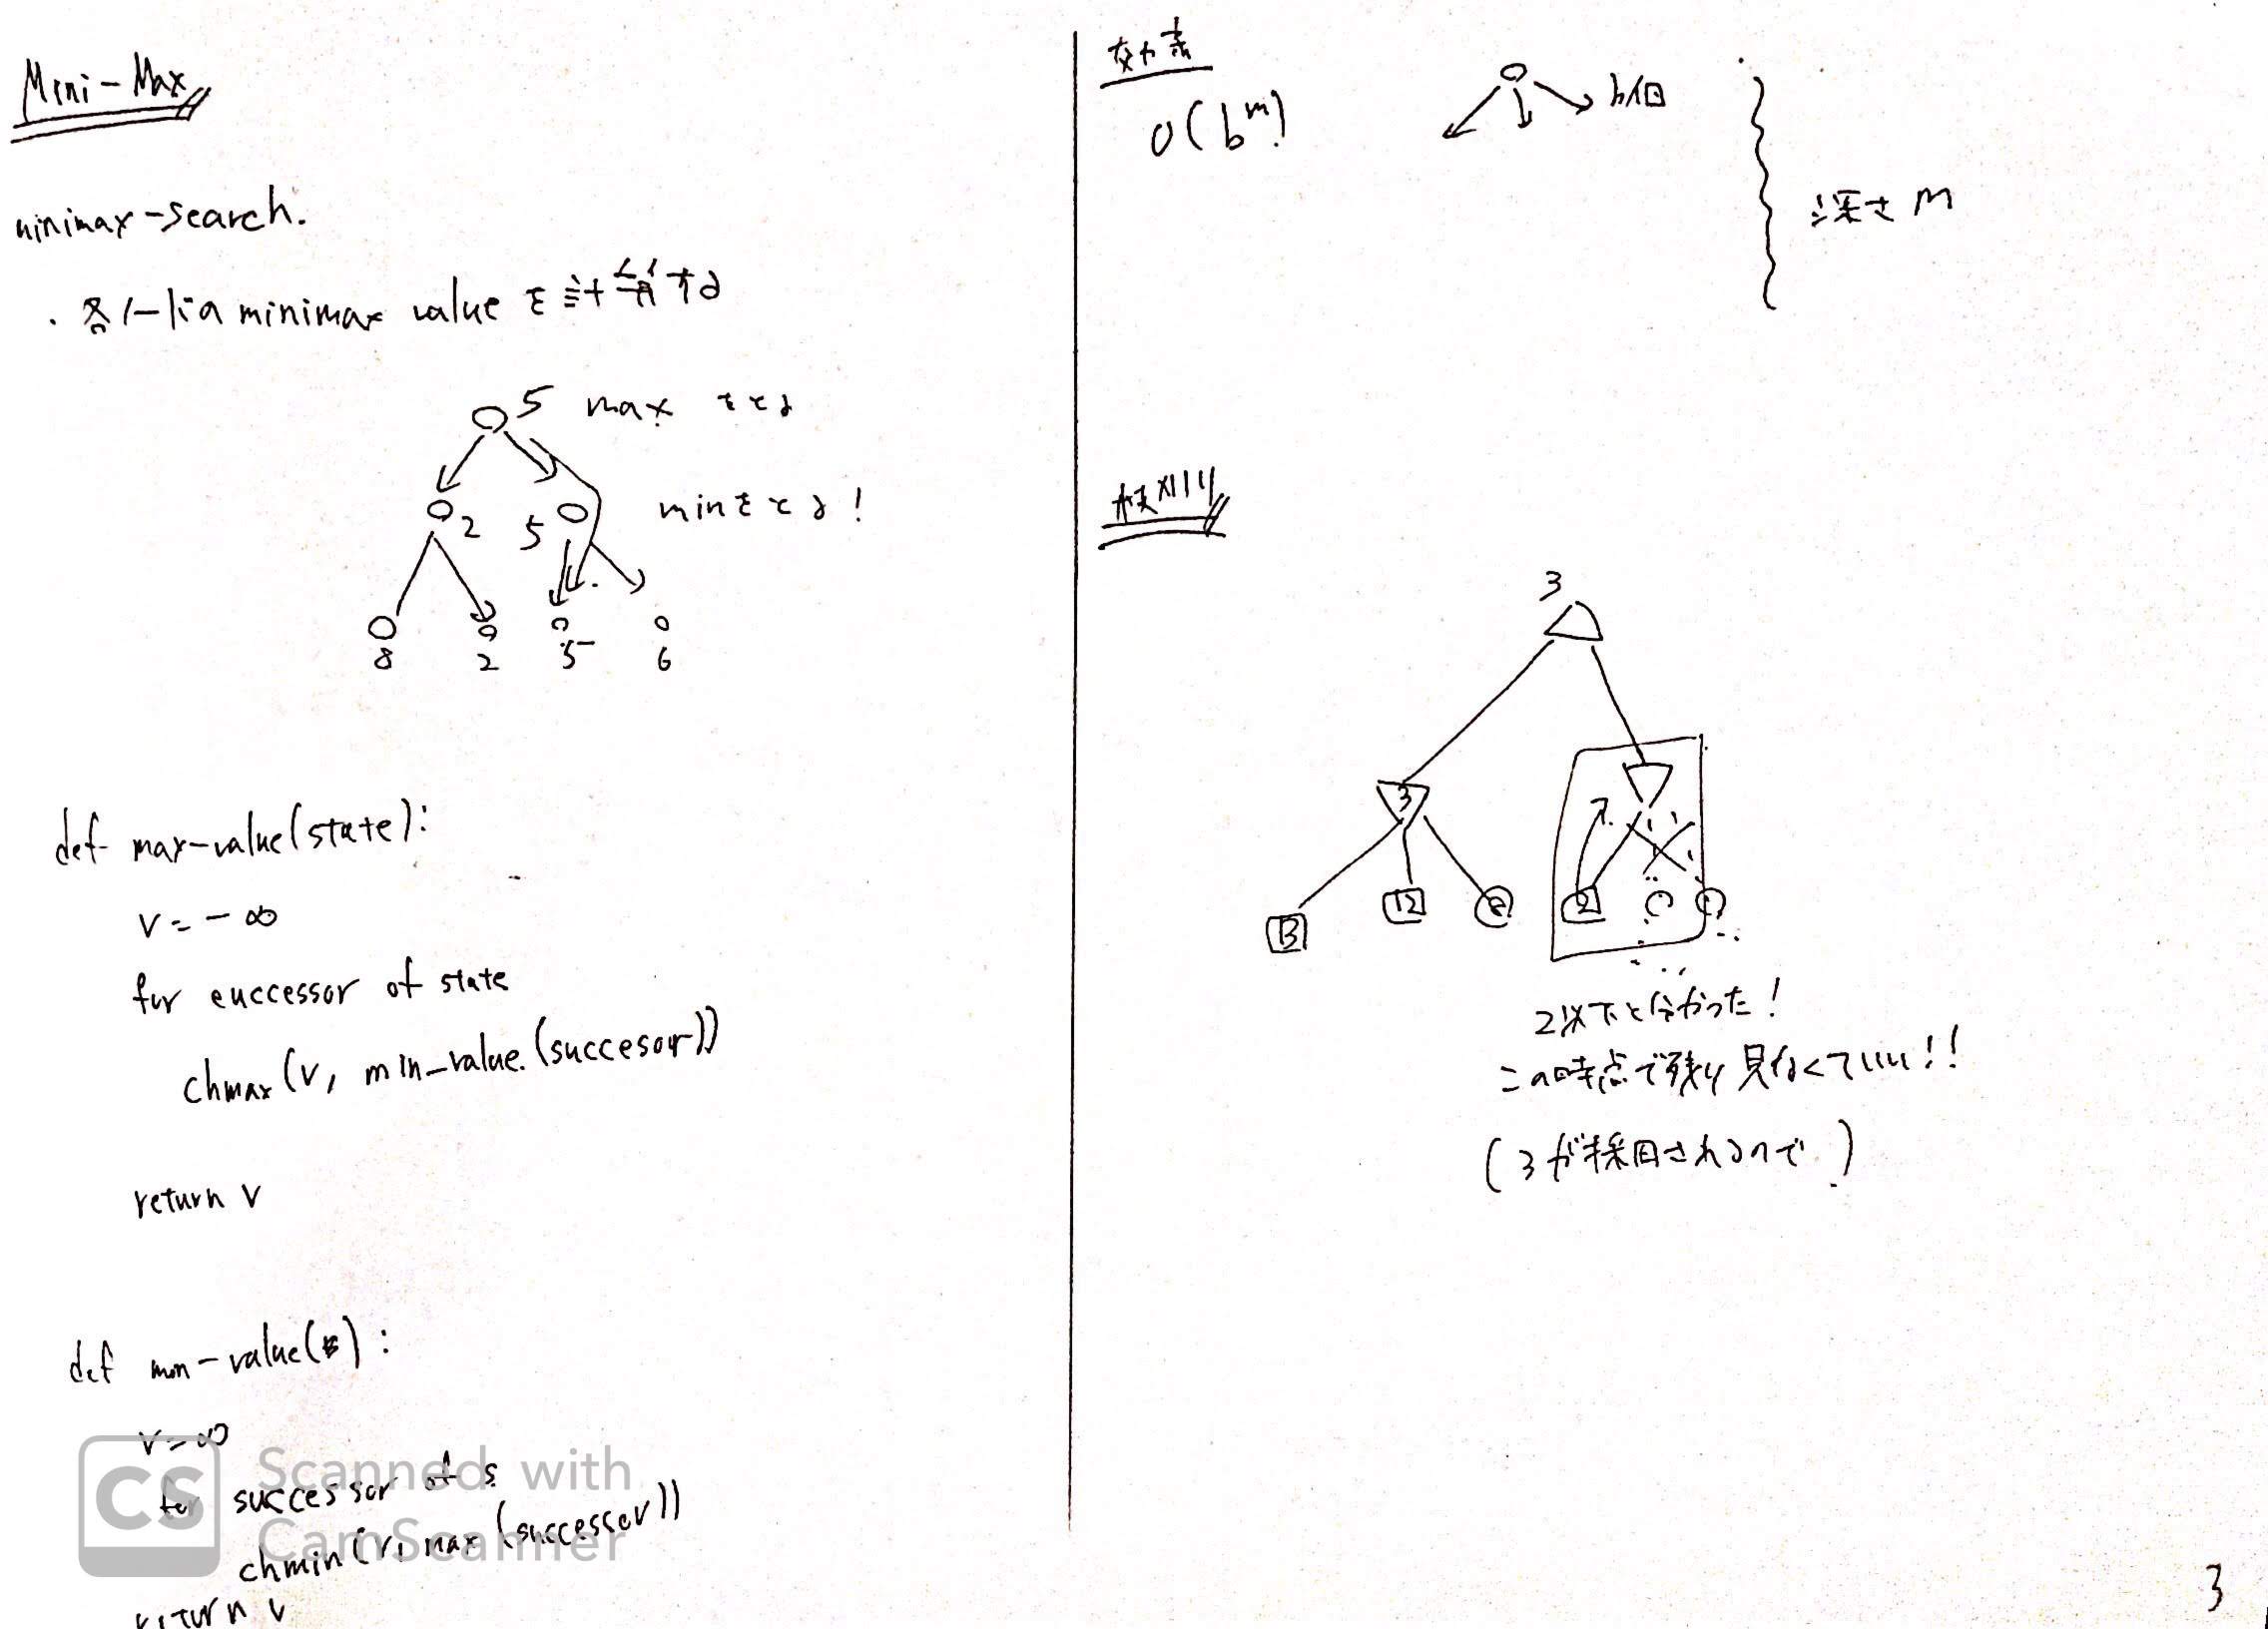 Mini-Max
minimax-search.
・各ノードの minimax value を計算する
5 max をとる
2 5 minをとる!
8 2 5 6
def max-value(state):
v = -∞
for euccessor of state
chmax(v, min_value.(succesor))
return v
def min-value(s):
v = ∞
for successor of s
chmin(v, max(successor))
return v
効率
O(b^m)
b個
深さ m
枝刈り
3
3
12
2
2以下と分かった!
この時点で残り見なくていい!!
(3が採用されるので)
3
CS
Scanned with
CamScanner